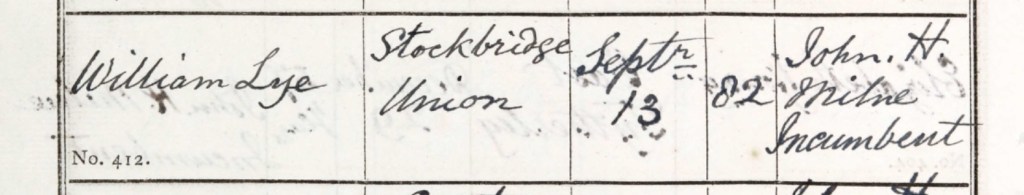 William Lye
No. 412.
Stockbridge
Union
Septr
13
82
John. H.
Milne
Incumbent